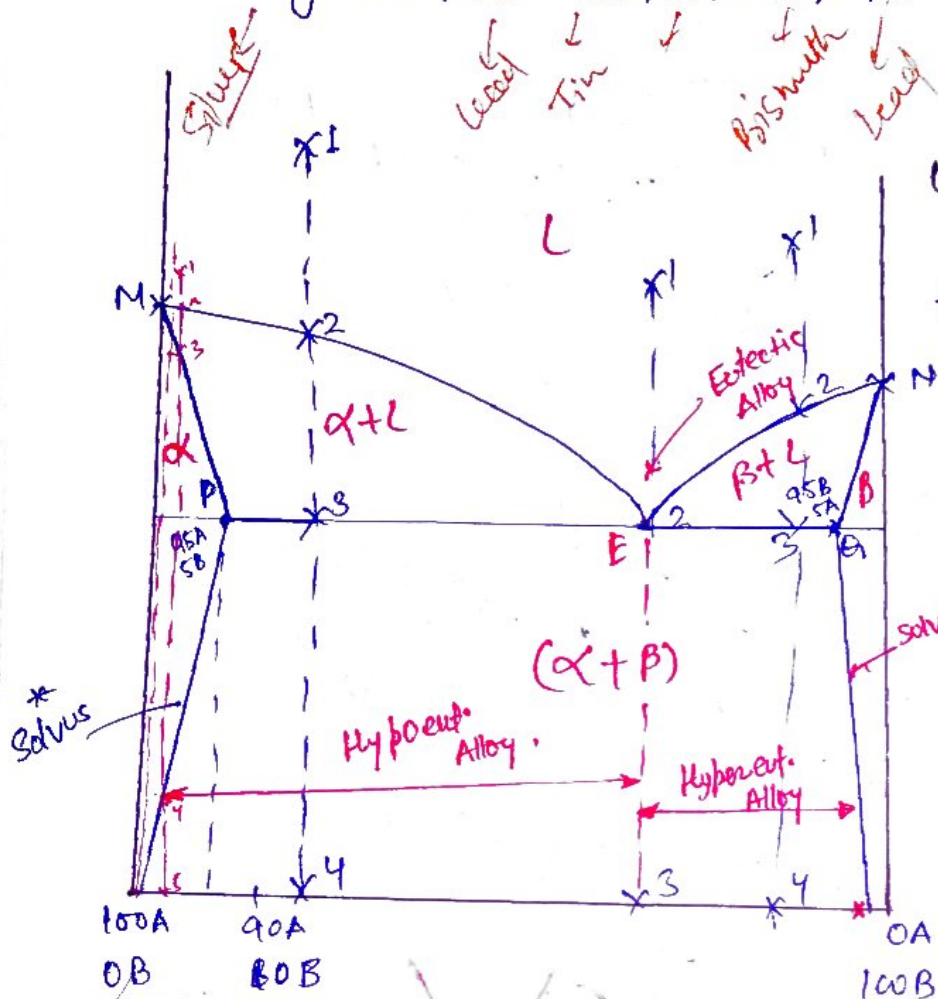 Silver
Lead
Tin
Bismuth
Lead
1
L
1
1
M
2
3
Eutectic
Alloy
2
N
α
α+L
β+L
95B
5A
β
P
3
2
3
Q
95A
5B
E
(α+β)
solv
*
Solvus
Hypoeut.
Alloy.
Hypereut.
Alloy
4
5
4
3
4
100A
90A
0A
0B
10B
100B